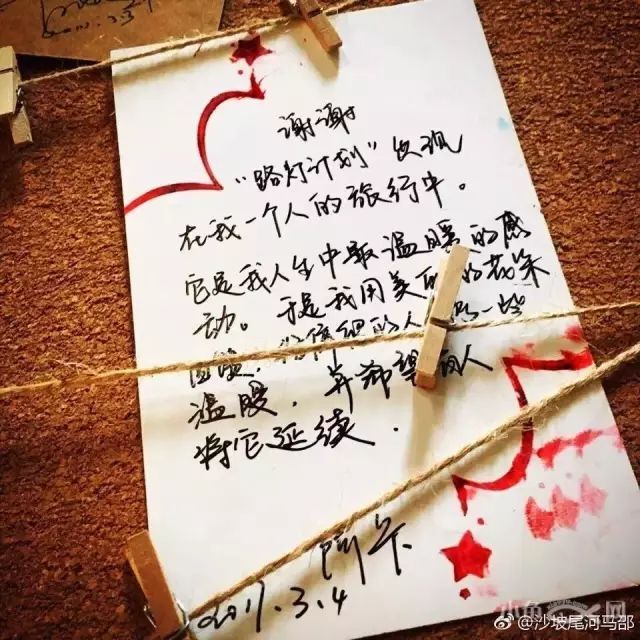 谢谢
“路灯计划”出现
在我一个人的旅行中。
它是我人生中最温暖的感
动。于是我用美丽的花朵
温暖,并希望有人
将它延续.
阿卡
2017.3.4
@沙坡尾河马邵